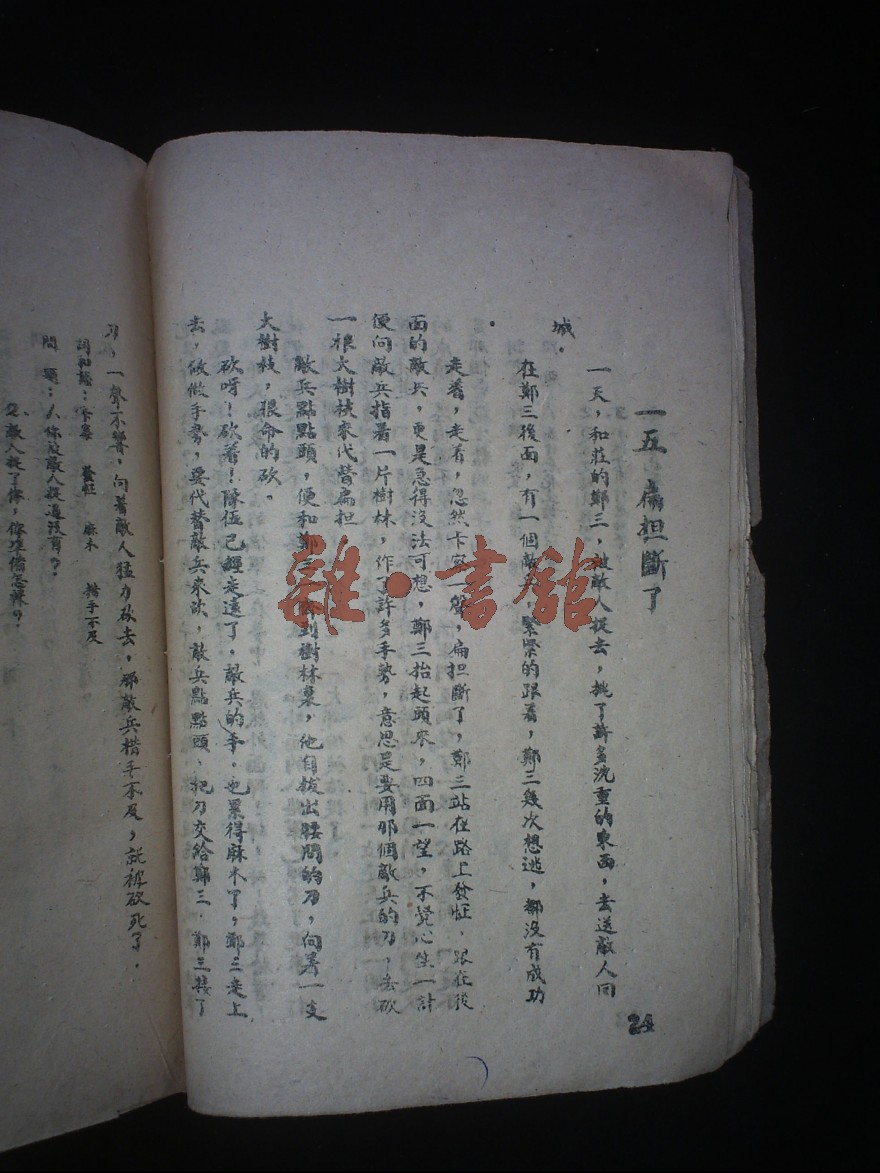 一五、扁担斷了
一天，和莊的鄭三，被敵人捉去，挑了許多沈重的東西，去送敵人回
城。
在鄭三後面，有一個敵兵，緊緊的跟着，鄭三幾次想逃，都沒有成功
。
走着，走着，忽然卡察一聲，扁担斷了，鄭三站在路上發怔，跟在後
面的敵兵，更是急得沒法可想，鄭三抬起頭來，四面一望，不覺心生一計
便向敵兵指着一片樹林，作了許多手勢，意思是要用那個敵兵的刀，去砍
一根大樹枝來代替扁担
敵兵點點頭，便和鄭三 到樹林裏，他自拔出腰間的刀，向着一支
大樹枝，狠命的砍。
砍呀！砍着！隊伍已經走遠了，敵兵的手，也累得麻木了，鄭三走上
去，做做手勢，要代替敵兵來砍，敵兵點點頭、把刀交給鄭三．鄭三接了
24
刀，一聲不響，向着敵人猛力砍去，那敵兵措手不及，就被砍死了．
詞和語：卡察 發怔 麻木 措手不及
問題：1、你被敵人捉過沒有？
2、敵人捉了你，你準備怎樣？
雜·書館